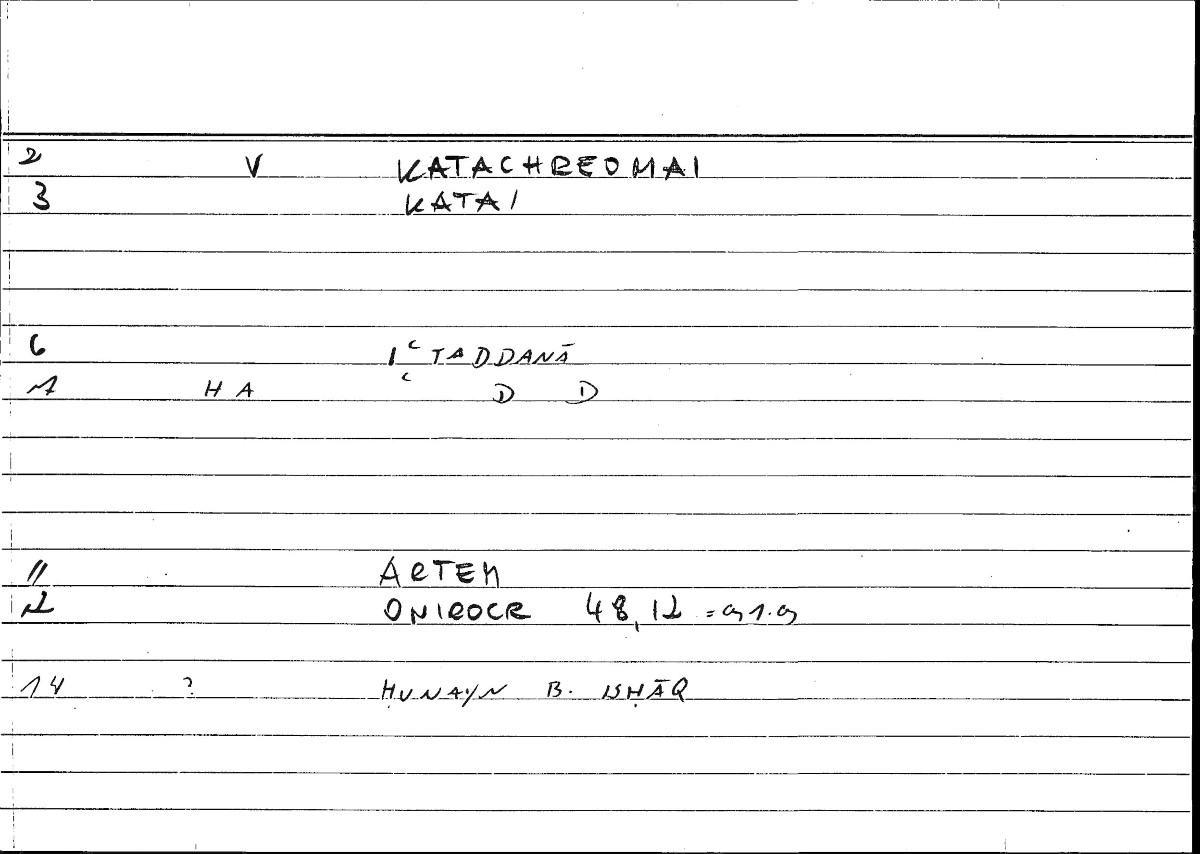 2 V KATACHREOMAI
3 KATAI
6 IʿTADDANĀ
7 HA ʿ D D
11 ARTEM
12 ONIROCR 48,12 = 91.9
14 ? ḤUNAYN B. ISḤĀQ